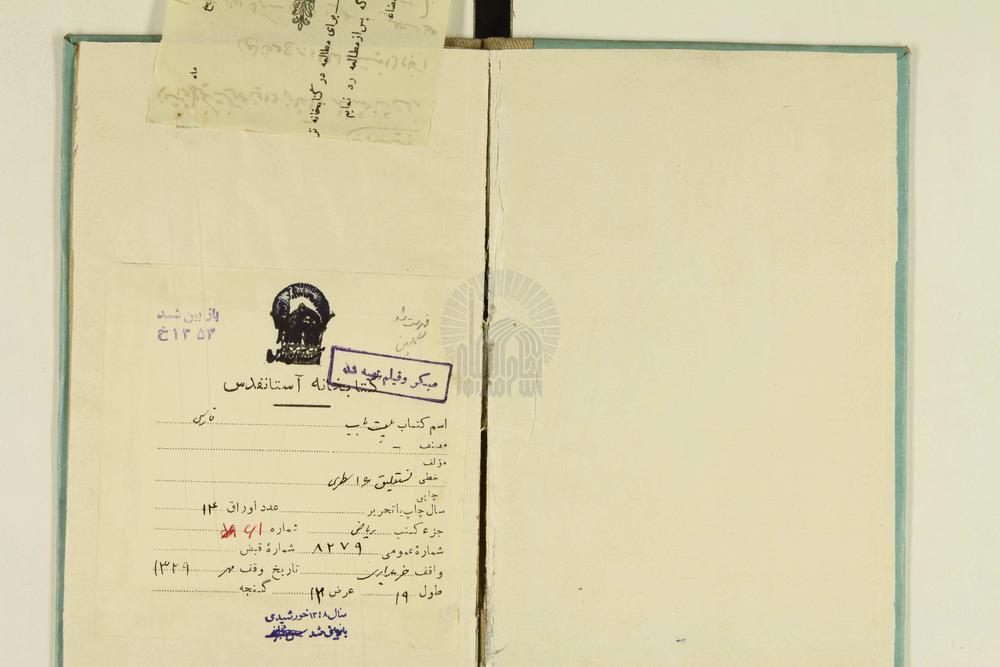 که پس از مطالعه رد نمایم
برای مطالعه در کتابخانه
ماه
باز بین شد
۱۳۵۳ خ
فهرست شد
میکر و فیلم تهیه شد
کتابخانه آستانقدس
اسم کتاب بیست باب فارسی
مصنف –
مؤلف
خطی نستعلیق ۱۶ سطری
چاپی
سال چاپ یا تحریر عدد اوراق ۱۴
جزء کتب ریاضی شماره
شمارهٔ عمومی ۸۲۷۹ شمارهٔ قبض
واقف خریداری تاریخ وقف مهر ۱۳۲۹
طول ۱۹ عرض ۱۲ گنجه
سال ۱۳۴۸ خورشیدی
بازبینی شد